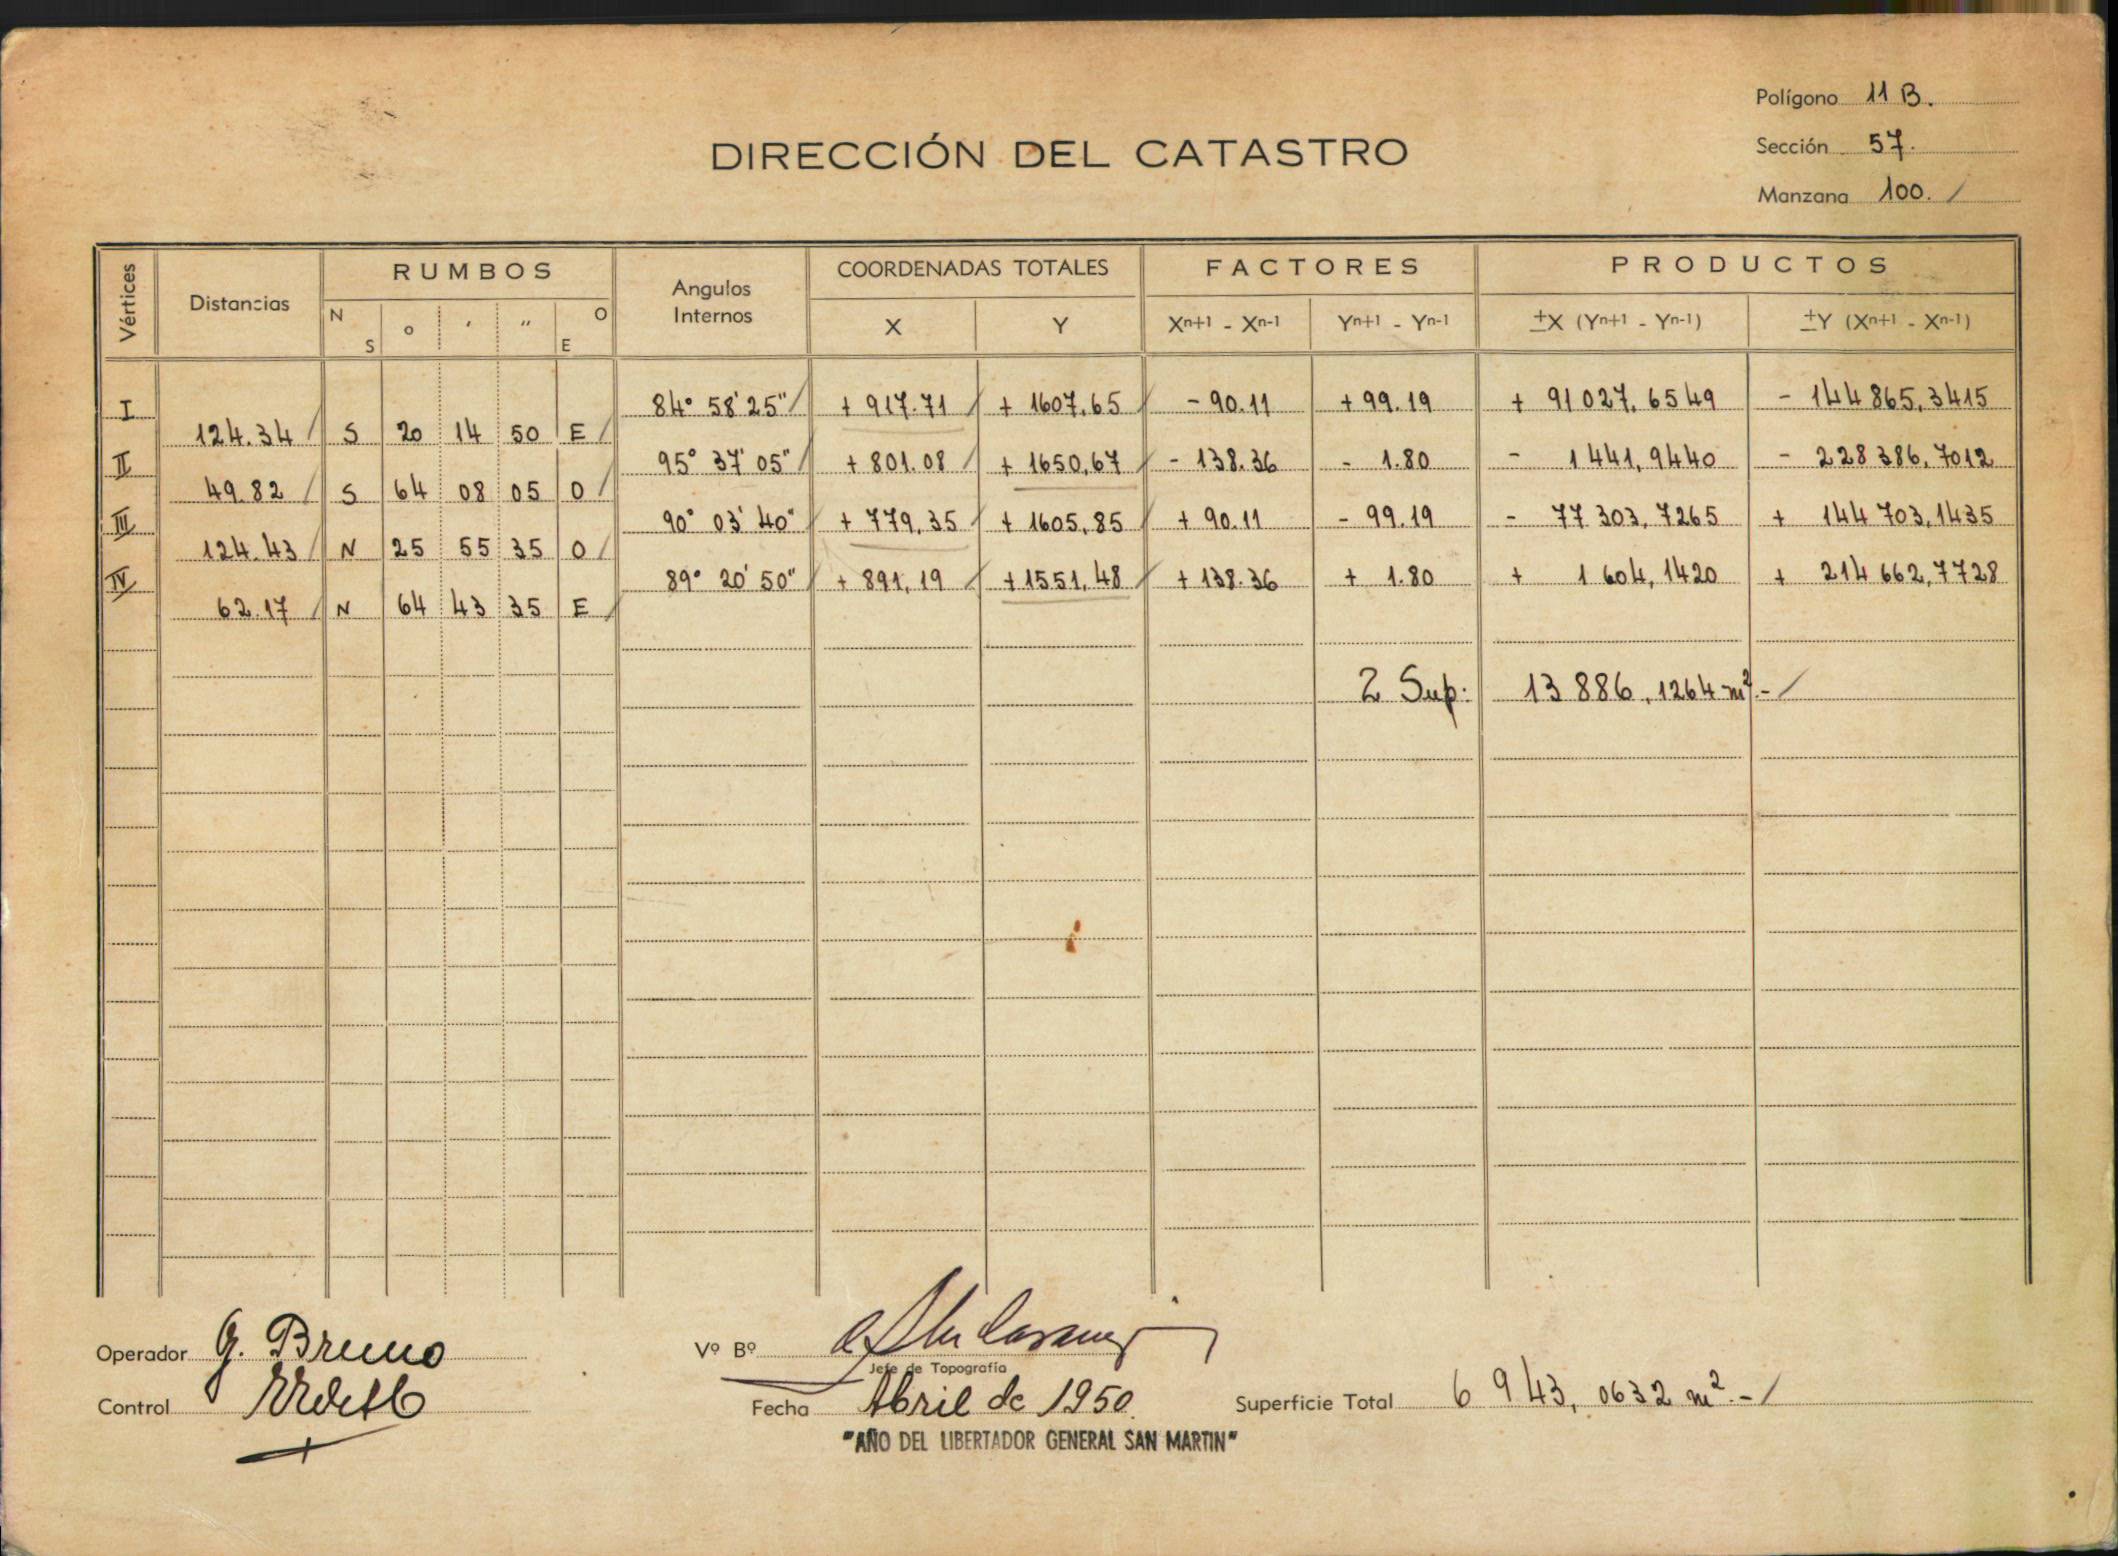 Polígono 11 B.
Sección 57.
Manzana 100. /
DIRECCIÓN DEL CATASTRO
Vértices Distancias RUMBOS Angulos Internos COORDENADAS TOTALES FACTORES PRODUCTOS
N S ° ' " O E X Y Xn+1 - Xn-1 Yn+1 - Yn-1 ±X (Yn+1 - Yn-1) ±Y (Xn+1 - Xn-1)
I 84° 58' 25" / + 917.71 / + 1607,65 / - 90.11 + 99.19 + 91 027, 6549 - 144 865, 3415
124.34 / S 20 14 50 E /
II 95° 37' 05" + 801.08 / + 1650,67 / - 138.36 - 1.80 - 1 441, 9440 - 228 386, 7012
49.82 / S 64 08 05 O /
III 90° 03' 40" / + 779,35 / + 1605,85 / + 90.11 - 99.19 - 77 303, 7265 + 144 703, 1435
124.43 / N 25 55 35 O /
IV 89° 20' 50" / + 891,19 / + 1551,48 / + 138.36 + 1.80 + 1 604, 1420 + 214 662, 7728
62.17 / N 64 43 35 E /
2 Sup: 13 886, 1264 m².- /
Operador G. Bruno
Vº Bº
Jefe de Topografía
Control
Fecha Abril de 1950.
Superficie Total 6 943, 0632 m².- /
"AÑO DEL LIBERTADOR GENERAL SAN MARTIN"